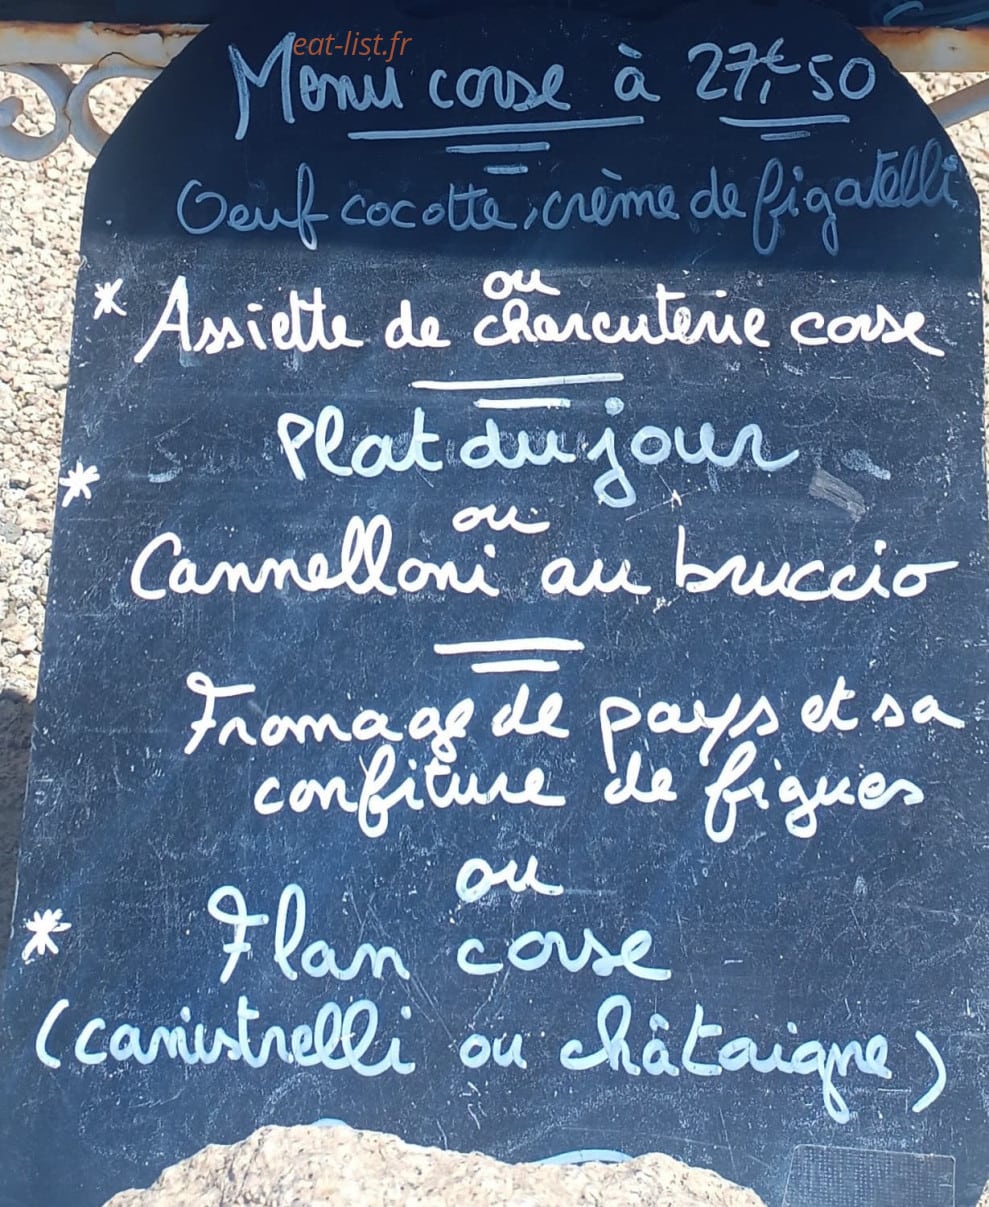 eat-list.fr
Menu corse à 27,€50
Oeuf cocotte, crème de figatelli
ou
* Assiette de charcuterie corse
Plat du jour
*
ou
Cannelloni au bruccio
Fromage de pays et sa
confiture de figues
ou
* Flan corse
(canistrelli ou châtaigne)